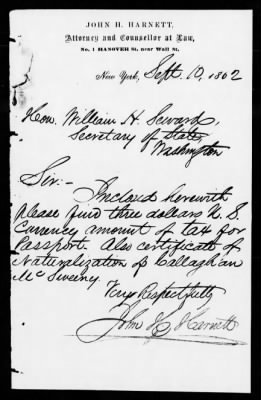 JOHN H. HARNETT,
Attorney and Counsellor at Law,
No. 1 HANOVER St. near Wall St.
New York, Sept. 10, 1862
Hon. William H. Seward
Secretary of State
Washington
Sir:-
Inclosed herewith
please find three dollars U. S.
Currency amount of tax for
Passport. Also certificate of
Naturalization of Callaghan
McSweeny.
Very Respectfully
John H. Harnett